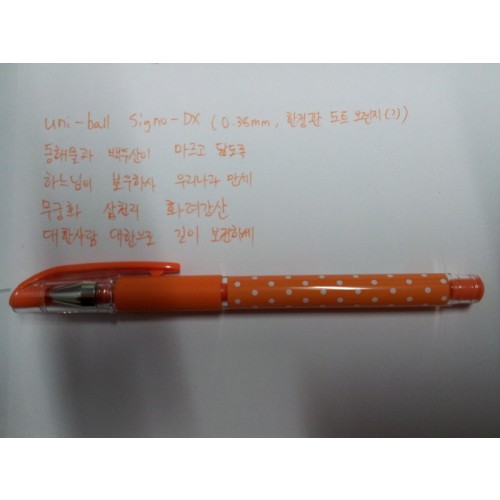 uni-ball Signo-DX (0.38mm, 한정판 도트 오렌지(?))
동해물과 백두산이 마르고 닳도록
하느님이 보우하사 우리나라 만세
무궁화 삼천리 화려강산
대한사람 대한으로 길이 보전하세